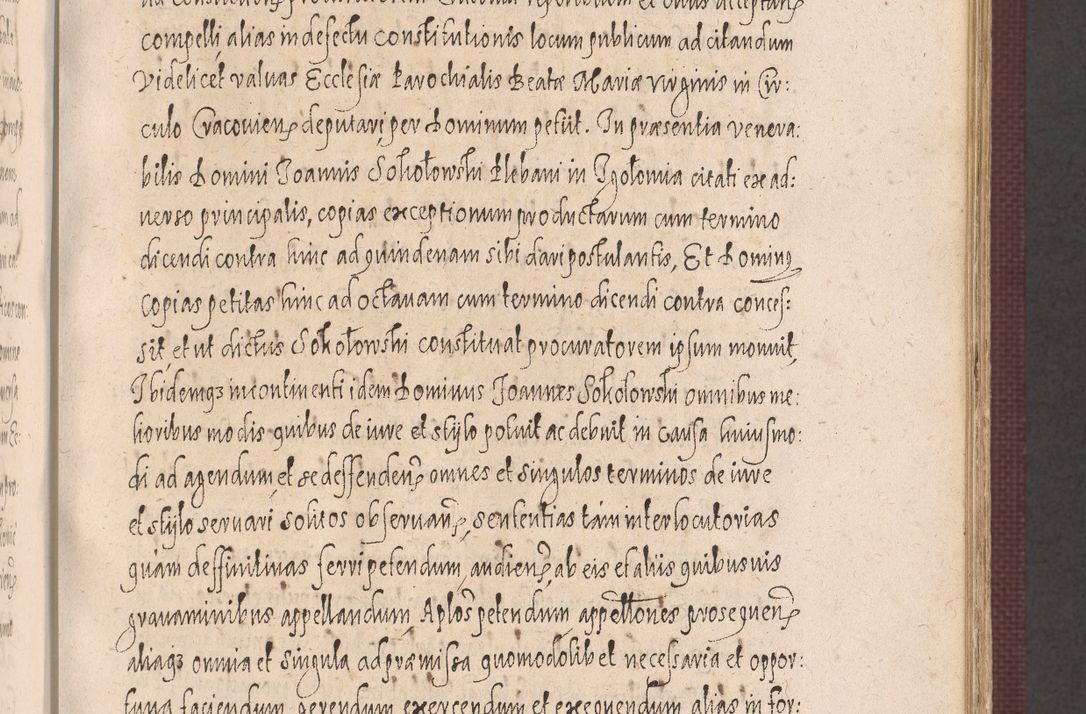 compelli, alias in defectu constitutionis locum publicum ad citandum
Videlicet valvas Ecclesiæ Parochialis Beatæ Mariæ virginis in Cir:
culo Cracovien deputari, per Dominum petiit. In præsentia venera:
bilis Domini Joannis Sokołowski Plebani in Jgołomia citati ex ad:
verso principalis, copias exceptionum productarum cum termino
dicendi contra hinc ad quindenam sibi dari postulantis, Et Dominus
Copias petitas hinc ad octavam cum termino dicendi contra conces:
sit, et ut dictus Sokołowski constituat procuratorem ipsum monuit,
Ibidemq3 incontinenti idem Dominus Joannes Sokołowski omnibus me:
lioribus modis quibus de iure et stylo potuit ac debuit in causa huiusmo:
di ad agendum, et se deffenden omnes et singulos terminos de iure
et stylo servari solitos observan, sententias tam interlocutorias
quam deffinitivas ferri petendum, audien, ab eis et aliis quibusvis
gravaminibus appellandum, Aplos petendum, appellones prosequen
aliaq3 omnia et singula ad præmissa quomodolibet necessaria et oppor:
tuna faciendum, gerendum, exercendum et exequendum, alias in for: